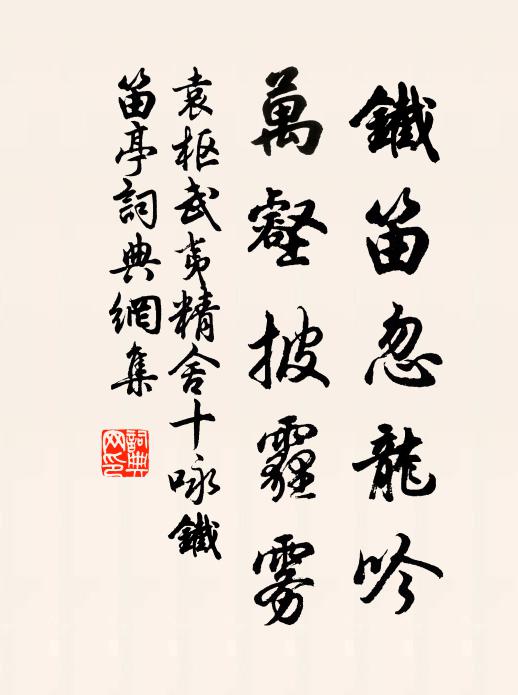 鐵笛忽龍吟
萬壑披霾霧
袁枢武夷精舍十咏鐵
笛亭詞典網集
詞典
网印